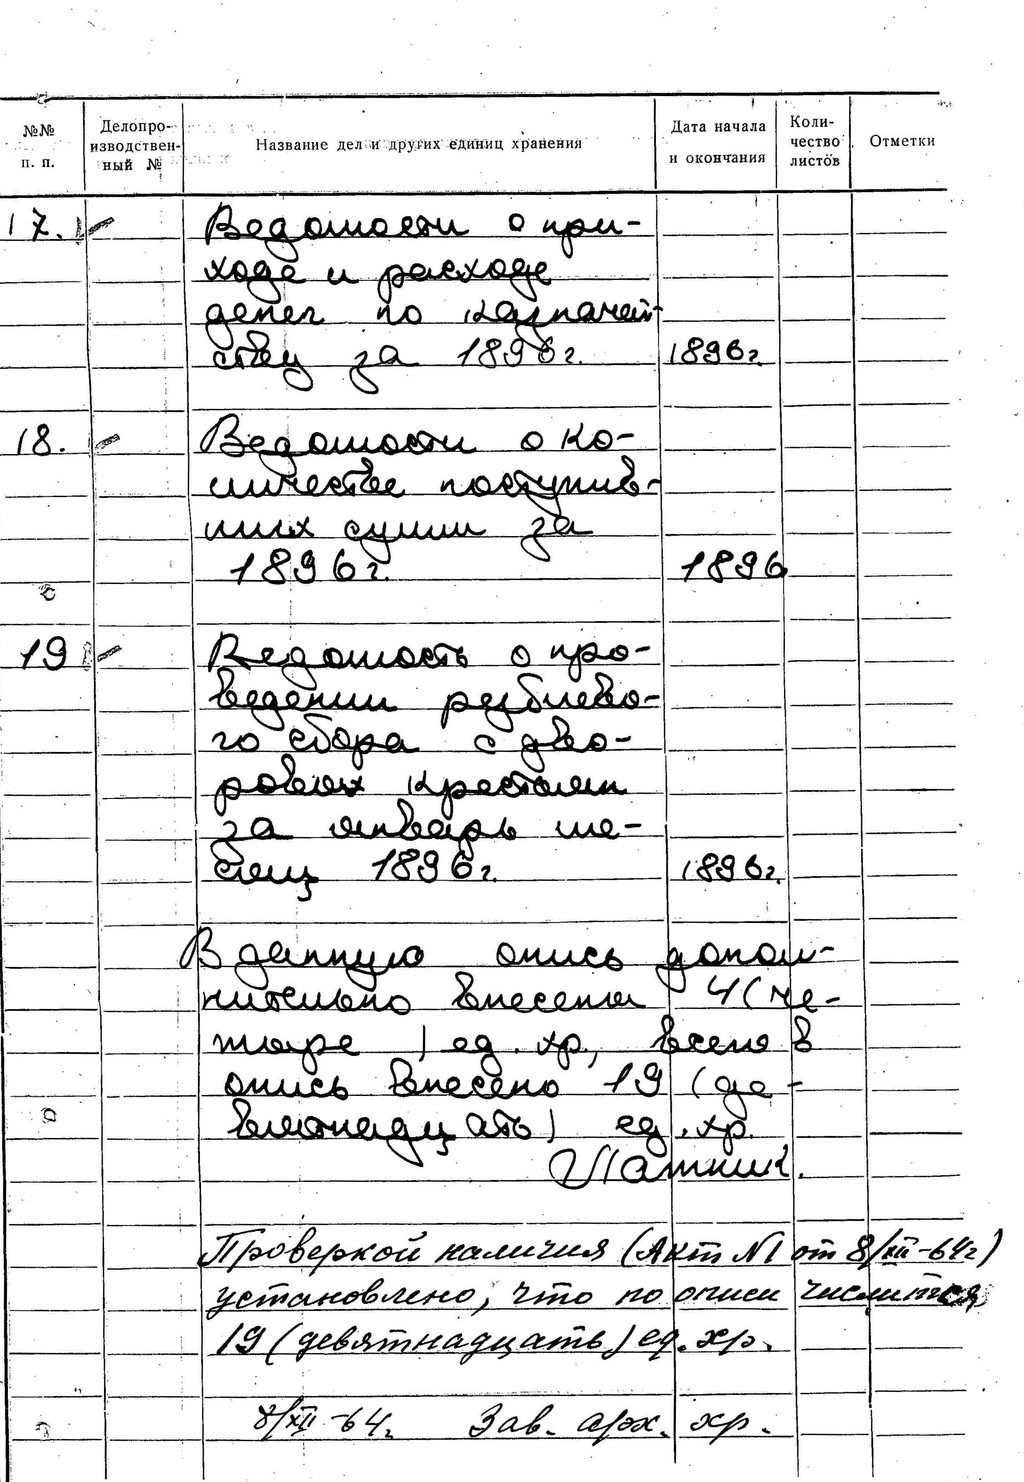 №№ п. п. Делопро-изводствен-ный № Название дел и других единиц хранения Дата начала и окончания Коли-чество листов Отметки
17. Ведомости о при-
ходе и расходе
денег по казначей-
ству за 1896 г. 1896 г.
18. Ведомости о ко-
личестве поступив-
ших сумм за
1896 г. 1896
19 Ведомость о про-
ведении рублево-
го сбора с дво-
ровых крестьян
за январь ме-
сяц 1896 г. 1896 г.
В данную опись допол-
нительно внесены 4 (че-
тыре) ед. хр., всего в
опись внесено 19 (де-
вятнадцать) ед. хр.
Проверкой наличия (Акт №1 от 8/XII-64г)
установлено, что по описи числится
19 (девятнадцать) ед. хр.
8/XII-64г. Зав. арх. хр.